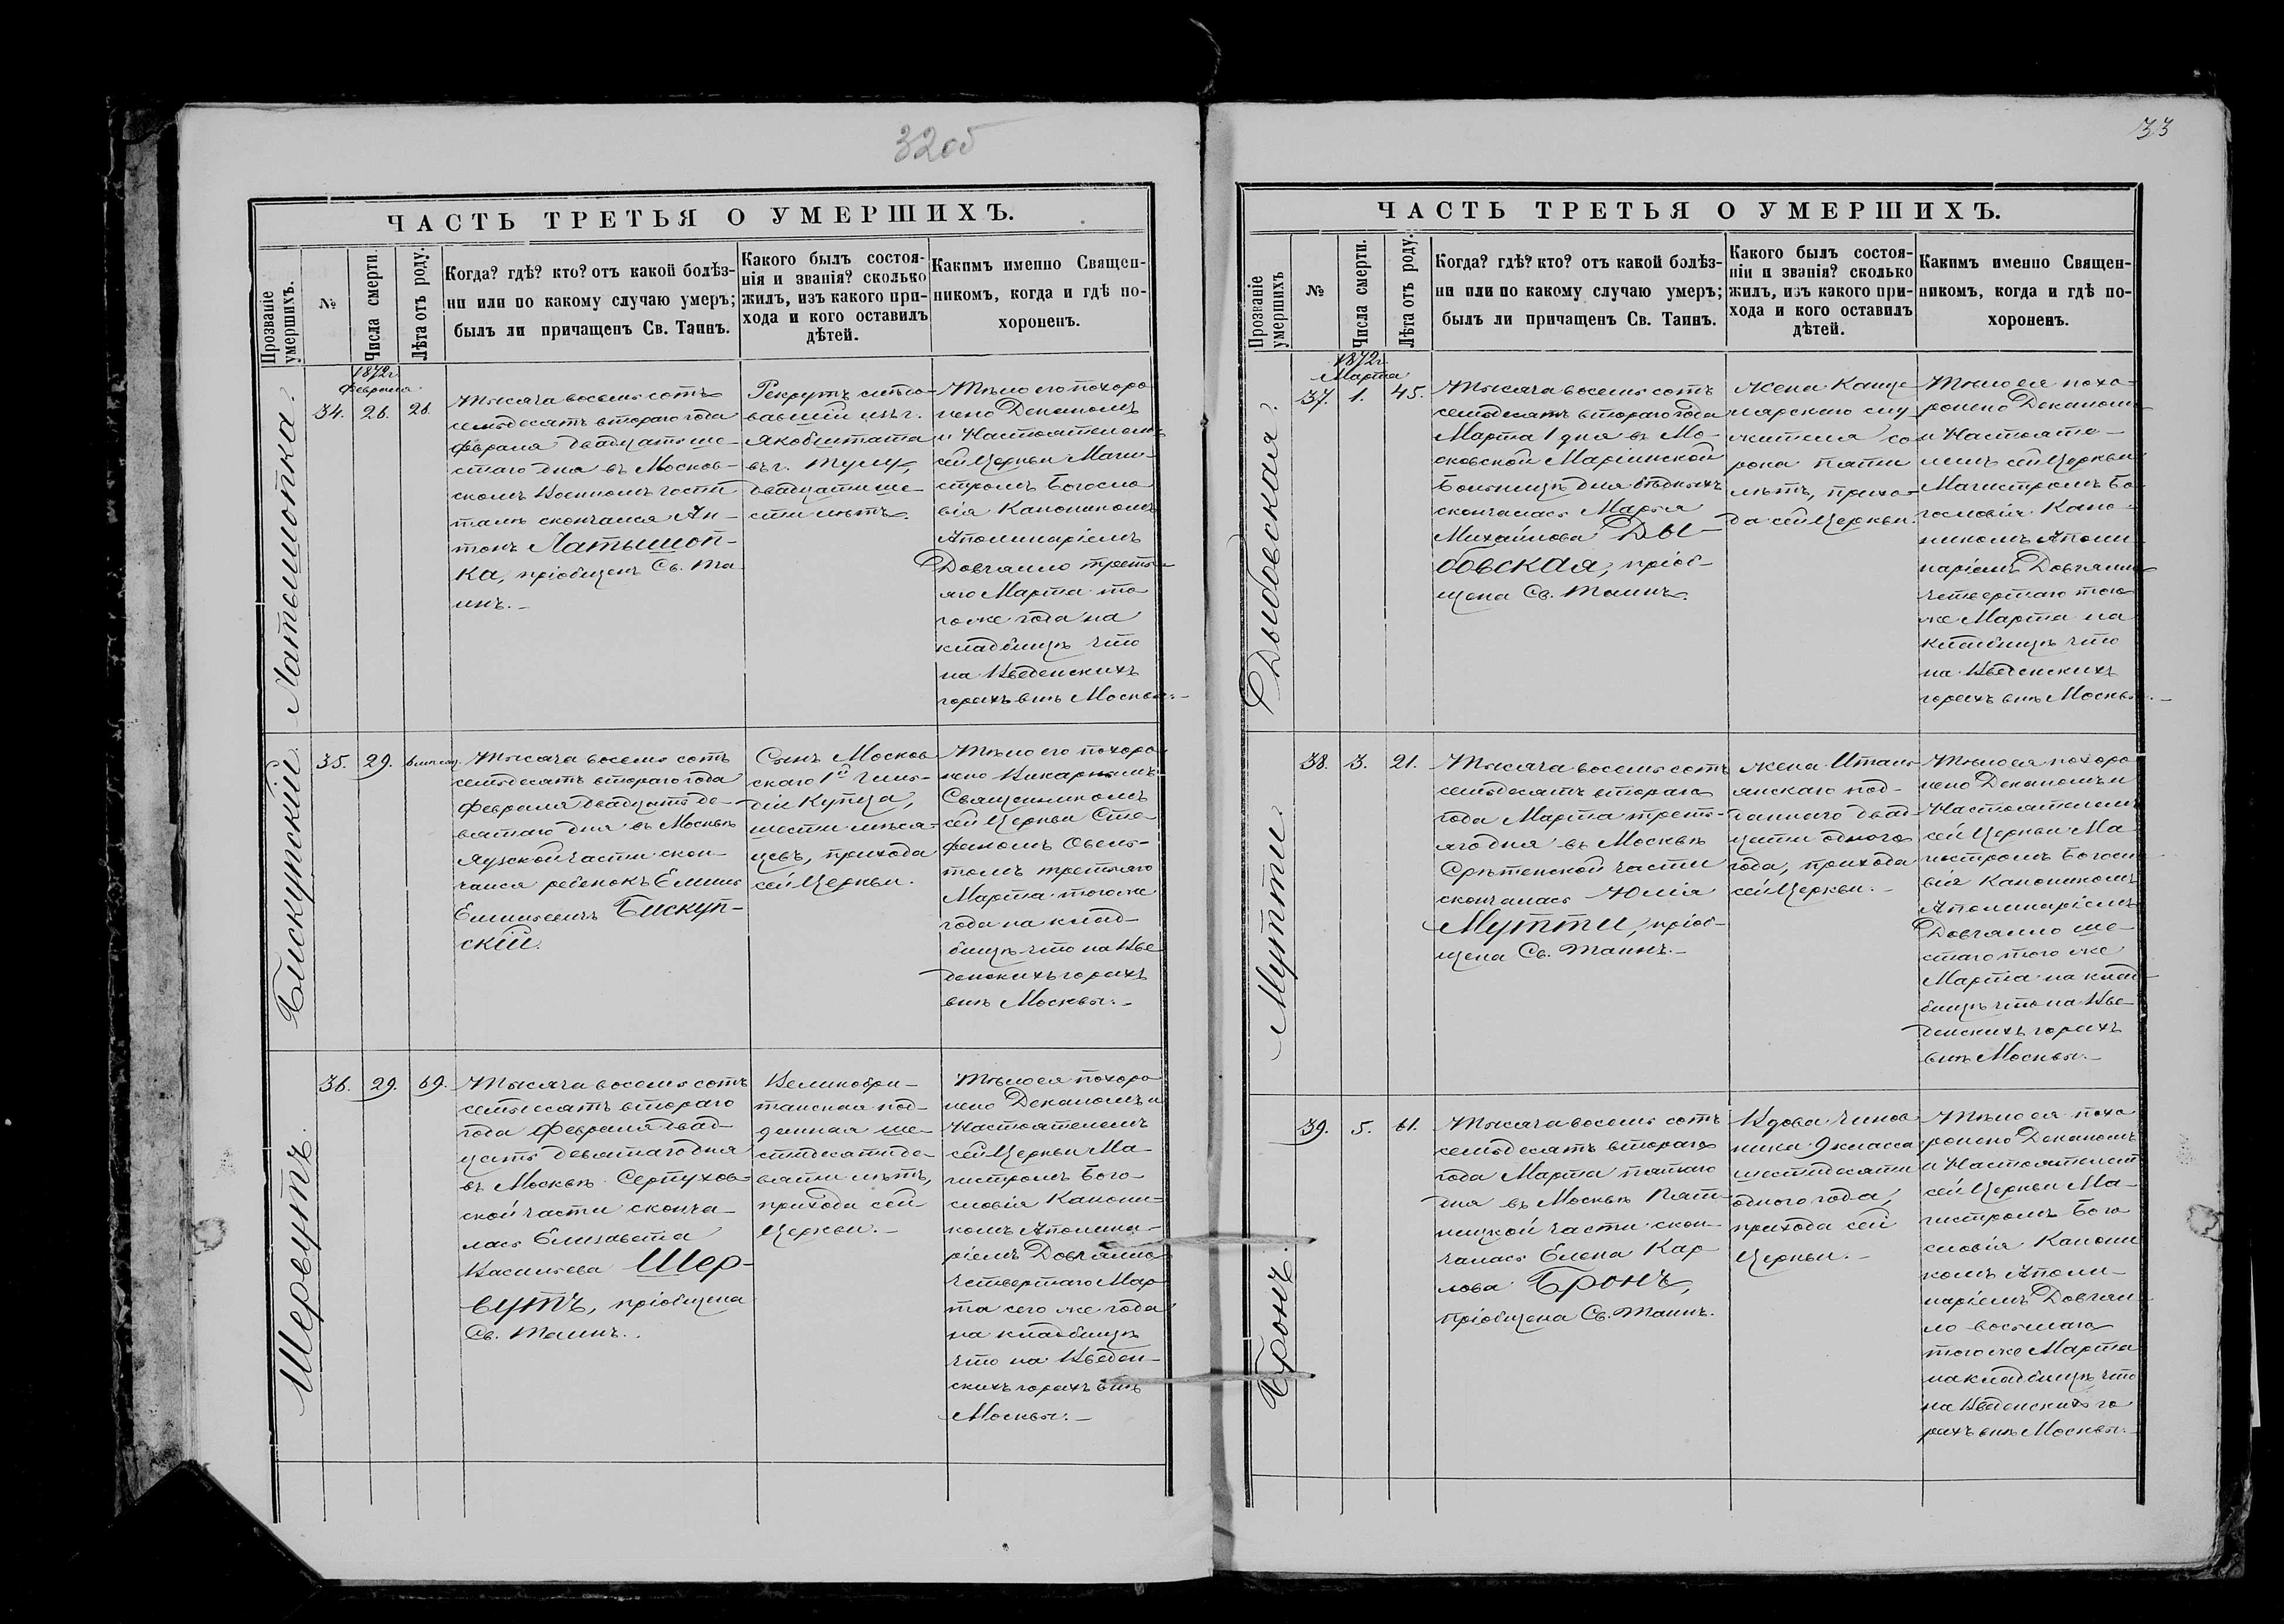 32об
ЧАСТЬ ТРЕТЬЯ О УМЕРШИХЪ.
Прозваніе умершихъ.
№
Числа смерти.
Лѣта отъ роду.
Когда? гдѣ? кто? отъ какой болѣз-
ни или по какому случаю умеръ;
былъ ли причащенъ Св. Таинъ.
Какого былъ состоя-
нія и званія? сколько
жилъ, изъ какого при-
хода и кого оставилъ
дѣтей.
Какимъ именно Священ-
никомъ, когда и гдѣ по-
хороненъ.
Латышопка.
34.
1872г.
Февраля.
26.
26.
Тысяча восемь сотъ
семьдесятъ втораго года
Февраля двадцать ше-
стаго дня въ Москов-
скомъ Военномъ гости
талѣ скончался Ан-
тонъ Латышоп-
ка, пріобщенъ Св. Та
инъ.
Рекрутъ слѣдо-
вавшій изъ г.
Якобштата
въ г. Тулу,
двадцати ше-
сти лѣтъ.
Тѣло его похоро
нено Деканомъ
и Настоятелемъ
сей Церкви Маги-
стромъ Богосло
вія Каноникомъ
Аполинаріемъ
Довгялло треть
яго Марта то
го же года на
кладбищѣ что
на Введенскихъ
горахъ внѣ Москвы.
Бискупскій.
35.
29.
6 мѣсяц.
Тысяча восемь сотъ
семьдесятъ втораго года
Февраля двадцать де-
вятаго дня въ Москвѣ
Яузской части скон-
чался ребенокъ Емилъ
Емильевичъ Бискуп-
скій.
Сынъ Москов
скаго 1й Гиль-
діи Купца,
шести мѣся-
цевъ, прихода
сей Церкви.
Тѣло его похоро
нено Викарнымъ
Священникомъ
сей Церкви Сте-
фаномъ Овель-
томъ третьяго
Марта того же
года на клад-
бищѣ что на Вве
денскихъ горахъ
внѣ Москвы.
Шервутъ.
36.
29.
69.
Тысяча восемь сотъ
семьдесятъ втораго
года Февраля двад-
цать девятаго дня
въ Москвѣ Серпухов-
ской части сконча-
лась Елизавета
Васильева Шер-
вутъ, пріобщена
Св. Таинъ.
Великобри-
танская под-
данная ше-
стидесяти де-
вяти лѣтъ,
прихода сей
Церкви.
Тѣло ея похоро
нено Деканомъ и
Настоятелемъ
сей Церкви Ма-
гистромъ Бого-
словія Канони-
комъ Аполина-
ріемъ Довгялло
четвертаго Мар
та сего же года
на кладбищѣ
что на Введен-
скихъ горахъ внѣ
Москвы.
33
ЧАСТЬ ТРЕТЬЯ О УМЕРШИХЪ.
Прозваніе умершихъ
№
Числа смерти.
Лѣта отъ роду.
Когда? гдѣ? кто? отъ какой болѣз-
ни или по какому случаю умеръ;
былъ ли причащенъ Св. Таинъ.
Какого былъ состоя-
ніи и званія? сколько
жилъ, изъ какого при-
хода и кого оставилъ
дѣтей.
Какимъ именно Священ-
никомъ, когда и гдѣ по-
хороненъ.
Дыбовская.
37.
1872г.
Марта
1.
45.
Тысяча восемь сотъ
семьдесятъ втораго года
Марта 1 дня въ Мо-
сковской Маріинской
Больницѣ для бѣдныхъ
скончалась Марья
Михайлова Ды-
бовская, пріоб-
щена Св. Таинъ.
Жена Канце
лярскаго слу
жителя со
рока пяти
лѣтъ, прихо-
да сей Церкви.
Тѣло ея похо-
ронено Деканомъ
и Настояте-
лемъ сей Церкви
Магистромъ Бо-
гословія Кано-
никомъ Аполи
наріемъ Довгялло
четвертаго того
же Марта на
кладбищѣ что
на Введенскихъ
горахъ внѣ Москвы.
Мутти.
38.
3.
21.
Тысяча восемь сотъ
семьдесятъ втораго
года Марта треть-
яго дня въ Москвѣ
Срѣтенской части
скончалась Юлія
Мутти, пріоб-
щена Св. Таинъ.
Жена Италь-
янскаго под-
даннаго двад-
цати одного
года, прихода
сей Церкви.
Тѣло ея похоро
нено Деканомъ и
Настоятелемъ
сей Церкви Ма
гистромъ Богосло
вія Каноникомъ
Аполинаріемъ
Довгялло ше-
стаго того же
Марта на клад-
бищѣ что на Вве-
денскихъ горахъ
внѣ Москвы.
Бронъ.
39.
5.
61.
Тысяча восемь сотъ
семьдесятъ втораго
года Марта пятаго
дня въ Москвѣ Пят-
ницкой части скон-
чалась Елена Кар
лова Бронъ,
пріобщена Св. Таинъ.
Вдова Чинов
ника 9 класса
шестидесяти
одного года,
прихода сей
Церкви.
Тѣло ея похо
ронено Деканомъ
и Настоятелемъ
сей Церкви Ма-
гистромъ Бого
словія Канони
комъ Аполи-
наріемъ Довгял
ло восьмаго
того же Марта
на кладбищѣ что
на Введенскихъ го
рахъ внѣ Москвы.